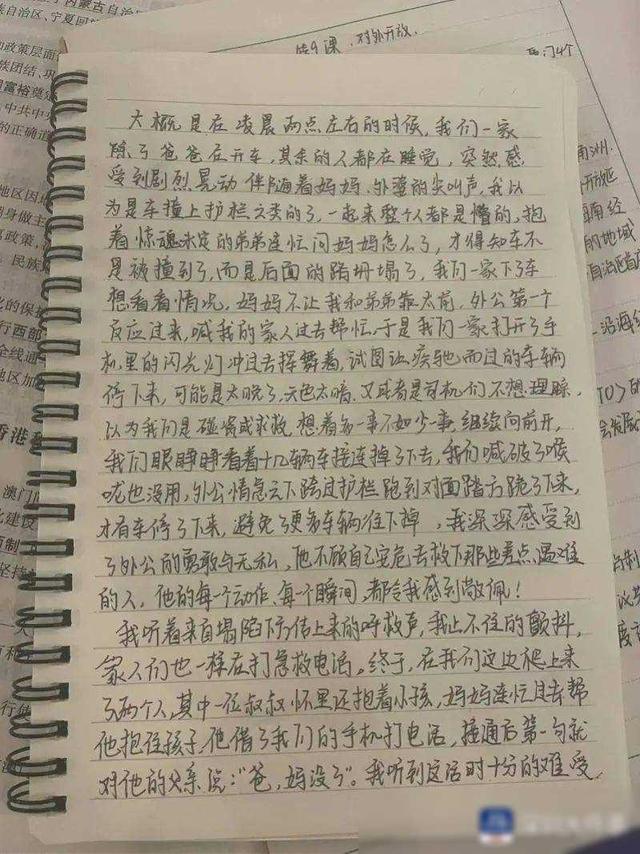 族自治区、宁夏回
和政策层面
族团结、巩
中共中央
的正确道
第9课、对外开放.
澳门4个
大概是在凌晨两点左右的时候,我们一家
除了爸爸在开车,其余的人都在睡觉,突然感
受到剧烈晃动伴随着妈妈、外婆的尖叫声,我以
为是车撞上护栏之类的了,一起来整个人都是懵的,抱
着惊魂未定的弟弟连忙问妈妈怎么了,才得知车不
是被撞到了,而是后面的路坍塌了,我们一家下了车
想看看情况,妈妈不让我和弟弟靠太前,外公第一个
反应过来,喊我的家人过去帮忙,于是我们一家打开了手
机里的闪光灯冲过去挥舞着,试图让疾驰而过的车辆
停下来,可能是太晚了,天色太暗、又或者是司机们不想理睬,
以为我们是碰瓷或求救,想着多一事不如少一事,继续向前开,
我们眼睁睁看着十几辆车接连掉了下去,我们喊破了喉
咙也没用,外公情急之下跨过护栏跑到对面路方跪了下来,
才有车停了下来,避免了更多车辆往下掉,我深深感受到
了外公的勇敢与无私,他不顾自己安危去救下那些差点遇难
的人,他的每个动作、每个瞬间,都令我感到敬佩!
我听着来自塌陷下方传上来的呼救声,我止不住的颤抖,
家人们也一样在打急救电话。终于,在我们这边爬上来
了两个人,其中一位叔叔怀里还抱着小孩,妈妈连忙过去帮
他抱住孩子,他借了我们的手机打电话,接通后第一句就
对他的父亲说:“爸,妈没了”。我听到这话时十分的难受,